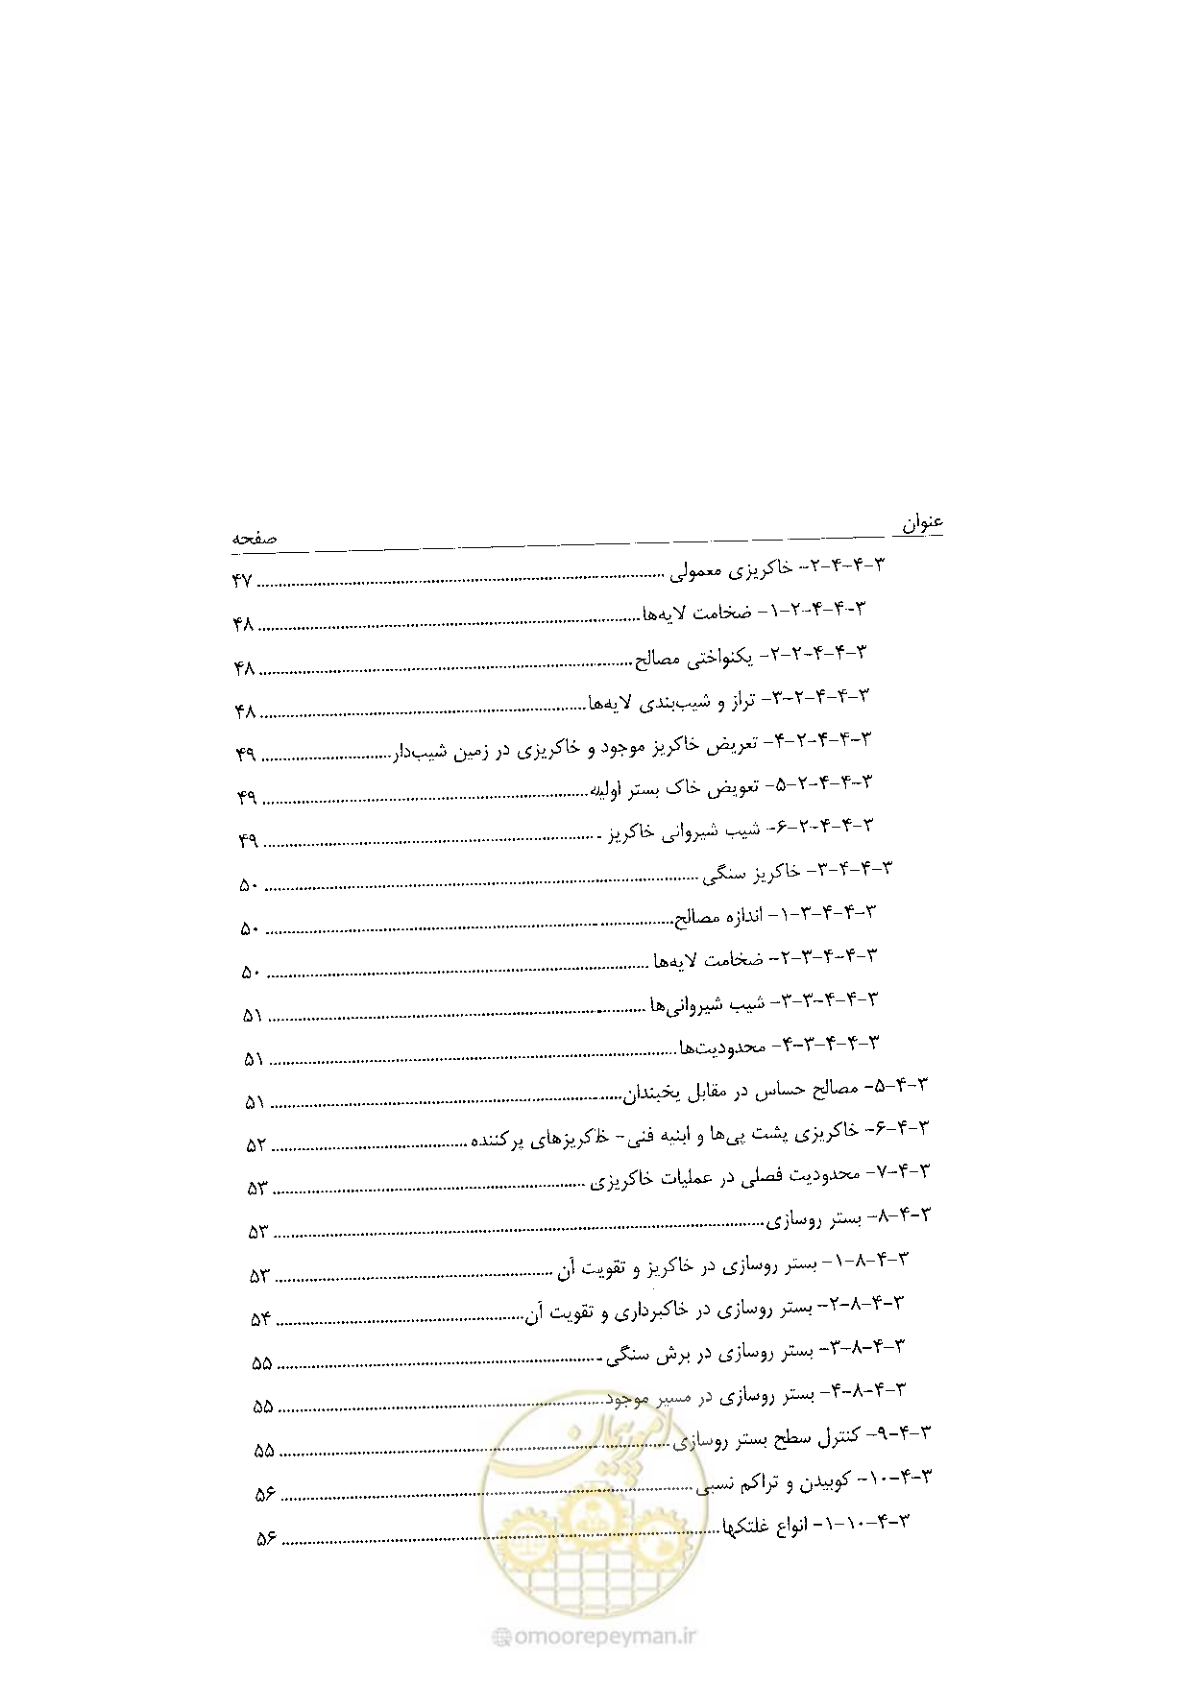 عنوان صفحه
۳-۴-۴-۲- خاکریزی معمولی ........ ۴۷
۳-۴-۴-۲-۱- ضخامت لایه‌ها ........ ۴۸
۳-۴-۴-۲-۲- یکنواختی مصالح ........ ۴۸
۳-۴-۴-۲-۳- تراز و شیب‌بندی لایه‌ها ........ ۴۸
۳-۴-۴-۲-۴- تعریض خاکریز موجود و خاکریزی در زمین شیب‌دار ........ ۴۹
۳-۴-۴-۲-۵- تعویض خاک بستر اولیه ........ ۴۹
۳-۴-۴-۲-۶- شیب شیروانی خاکریز ........ ۴۹
۳-۴-۴-۳- خاکریز سنگی ........ ۵۰
۳-۴-۴-۳-۱- اندازه مصالح ........ ۵۰
۳-۴-۴-۳-۲- ضخامت لایه‌ها ........ ۵۰
۳-۴-۴-۳-۳- شیب شیروانی‌ها ........ ۵۱
۳-۴-۴-۳-۴- محدودیت‌ها ........ ۵۱
۳-۴-۵- مصالح حساس در مقابل یخبندان ........ ۵۱
۳-۴-۶- خاکریزی پشت پی‌ها و ابنیه فنی- خاکریزهای پرکننده ........ ۵۲
۳-۴-۷- محدودیت فصلی در عملیات خاکریزی ........ ۵۳
۳-۴-۸- بستر روسازی ........ ۵۳
۳-۴-۸-۱- بستر روسازی در خاکریز و تقویت آن ........ ۵۳
۳-۴-۸-۲- بستر روسازی در خاکبرداری و تقویت آن ........ ۵۴
۳-۴-۸-۳- بستر روسازی در برش سنگی ........ ۵۵
۳-۴-۸-۴- بستر روسازی در مسیر موجود ........ ۵۵
۳-۴-۹- کنترل سطح بستر روسازی ........ ۵۵
۳-۴-۱۰- کوبیدن و تراکم نسبی ........ ۵۶
۳-۴-۱۰-۱- انواع غلتکها ........ ۵۶
امور پیمان
@omoorepeyman.ir